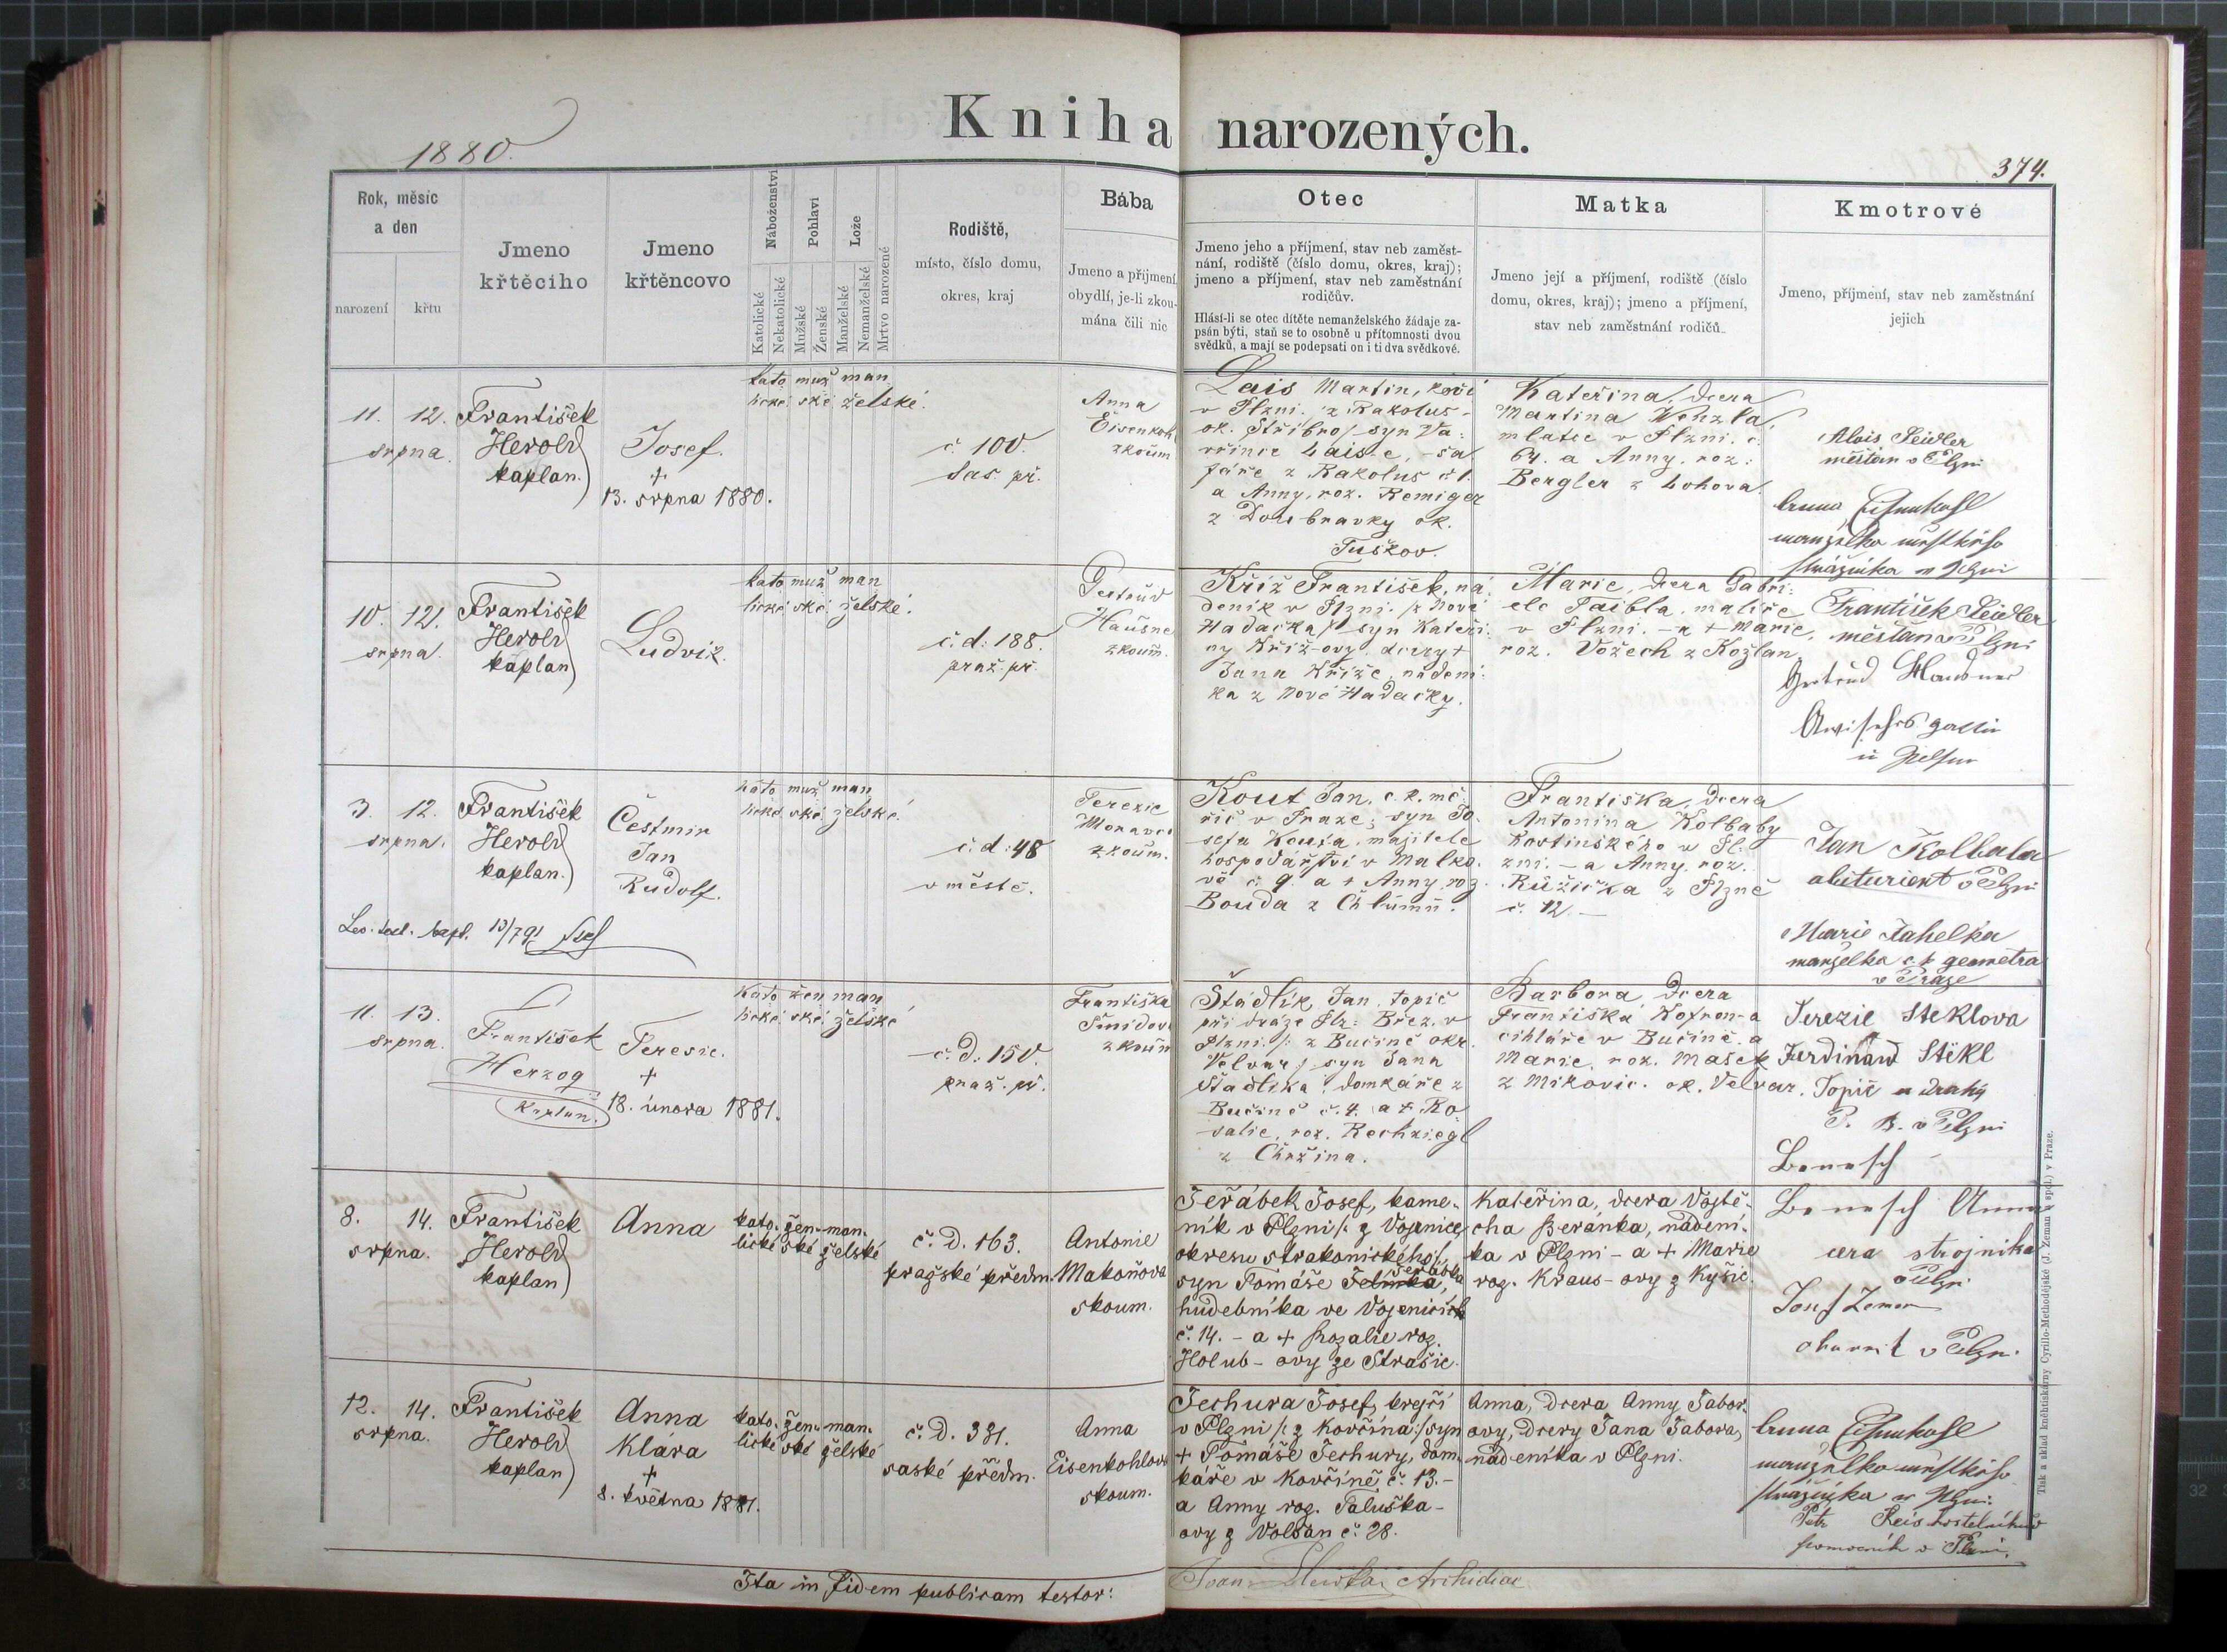 Kniha narozených.
1880.
374.
Rok, měsíc
a den
narození
křtu
Jmeno
křtěcího
Jmeno
křtěncovo
Náboženství
Katolické
Nekatolické
Pohlaví
Mužské
Ženské
Lože
Manželské
Nemanželské
Mrtvo narozené
Rodiště,
místo, číslo domu,
okres, kraj
Bába
Jmeno a přijmení
obydlí, je-li zkou-
mána čili nic
Otec
Jmeno jeho a příjmení, stav neb zaměst-
nání, rodiště (číslo domu, okres, kraj);
jmeno a příjmení, stav neb zaměstnání
rodičův.
Hlásí-li se otec dítěte nemanželského žádaje za-
psán býti, staň se to osobně u přítomnosti dvou
svědků, a mají se podepsati on i ti dva svědkové.
Matka
Jmeno její a příjmení, rodiště (číslo
domu, okres, kraj); jmeno a příjmení,
stav neb zaměstnání rodičů.
Kmotrové
Jmeno, příjmení, stav neb zaměstnání
jejich
11. 12.
srpna.
František
Herold
kaplan.
Josef.
+
13. srpna 1880.
kato muž man
lické ské želské.
č. 100.
sas. př.
Anna
Eisenkohl
zkoum
Lais Martin, kočí
v Plzni. z Rakolus-
ok. Stříbro/ syn Va-
vřince Laise, -ša
fáře z Rakolus č 1.
a Anny, roz. Remiger
z Doubravky ok.
Tuškov.
Kateřina, dcera
Martina Wenzla,
mlatec v Plzni. č.
64. a Anny. roz:
Bergler z Lohova.
Alois Seidler
měštan v Plzni
Anna Eisenkohl
manželka městského
strážníka v Plzni
10. 12.
srpna.
František
Herold
kaplan
Ludvik.
kato muž man
lické ské želské.
č.d. 188.
praž. př.
Gertrud
Haušne
zkoum.
Kříž František, ná
deník v Plzni. /z Nové
Hadačka/ syn Kateři-
ny Kříž-ovy, dcery +
Jana Kříže, nádení-
ka z Nové Hadačky.
Marie, dcera Gabri-
ele Taibla, malíře
v Plzni. - a + Marie,
roz. Vožech z Kozlan
František Seidler
měštan v Plzni
Gertrud Haubner
in Pilsen
3. 12.
srpna.
František
Herold
kaplan.
Čestmir
Jan
Rudolf.
kato muž man
lické ské želské.
č. d. 48
v městě.
Terezie
Moravc
zkoum.
Kout Jan, c. k. mě-
řič v Praze, syn Jo-
sefa Kouta, majitele
hospodářství v Malko-
vě č. 9. a + Anny roz.
Bouda z Chlumu.
Františka, dcera
Antonina Kolbaby
hostinského v Pl-
zni. - a Anny, roz.
Růžička z Plzně
č. 12. -
Jan Kolbaba
abiturient v Plzni
Marie Tahelka
manželka c. k. geometra
v Praze
11. 13.
srpna.
František
Herzog
kaplan.
Teresie.
+
18. února 1881.
kato žen man
lické ské želské
č. d. 150.
praž. př.
Františka
Šmidov
zkoum
Štádlík, Jan, topič
při dráze Plz: Břez. v
Plzni. /: z Bučině okr.
Velvar/ syn Jana
Stadlíka, domkáře z
Bučině č. 4. a + Ro
salie, roz. Rechziegl
z Chržina.
Barbora, dcera
Františka Kofron-a
cihláře v Bučině, a
Marie, roz. Mašek
z Mikovic. ok. Velvar.
Terezie Steklova
Ferdinand Stěkl
Topič u drahy
P. B. v Plzni
Benesch
8. 14.
srpna.
František
Herold
kaplan
Anna
kato- žen- man-
lické ské želské
č. D. 163.
pražské předm.
Antonie
Makoňova
skoum.
Jeřábek Josef, kame-
ník v Plzni /: z Vojenice,
okresu strakonického:/,
Jeřábka
syn Tomáše Jelinka,
hudebníka ve Vojenicích
č. 14. - a + Rozalie roz.
Holub-ovy ze Strašic.
Kateřina, dcera Vojtě-
cha Beránka, nádení-
ka v Plzni - a + Marie
roz. Kraus-ovy z Kyšic.
Benesch Anna
cera strojnika
v Plzni
Josef Zeman
v Plzni.
12. 14.
srpna.
František
Herold
kaplan
Anna
Klára
+
8. května 1881.
kato- žen- man-
lické ské želské
č. D. 331.
saské předm.
Anna
Eisenkohlova
skoum.
Techura Josef, krejčí
v Plzni /: z Kovčína:/ syn
+ Tomáše Techury, dom-
káře v Kovčíně, č. 13.-
a Anny roz. Paluška-
ovy z Volšan č. 28.
Anna, dcera Anny Tabor-
ovy, dcery Jana Tabora,
nádeníka v Plzni.
Anna Eisenkohl
manželka městského
strážníka v Plzni.
Petr
pomocník v Plzni.
Ita in fidem publicam testor:
Archidiac
Tisk a náklad kněhtiskárny Cyrillo-Methodějské (J. Zeman a spol.) v Praze.